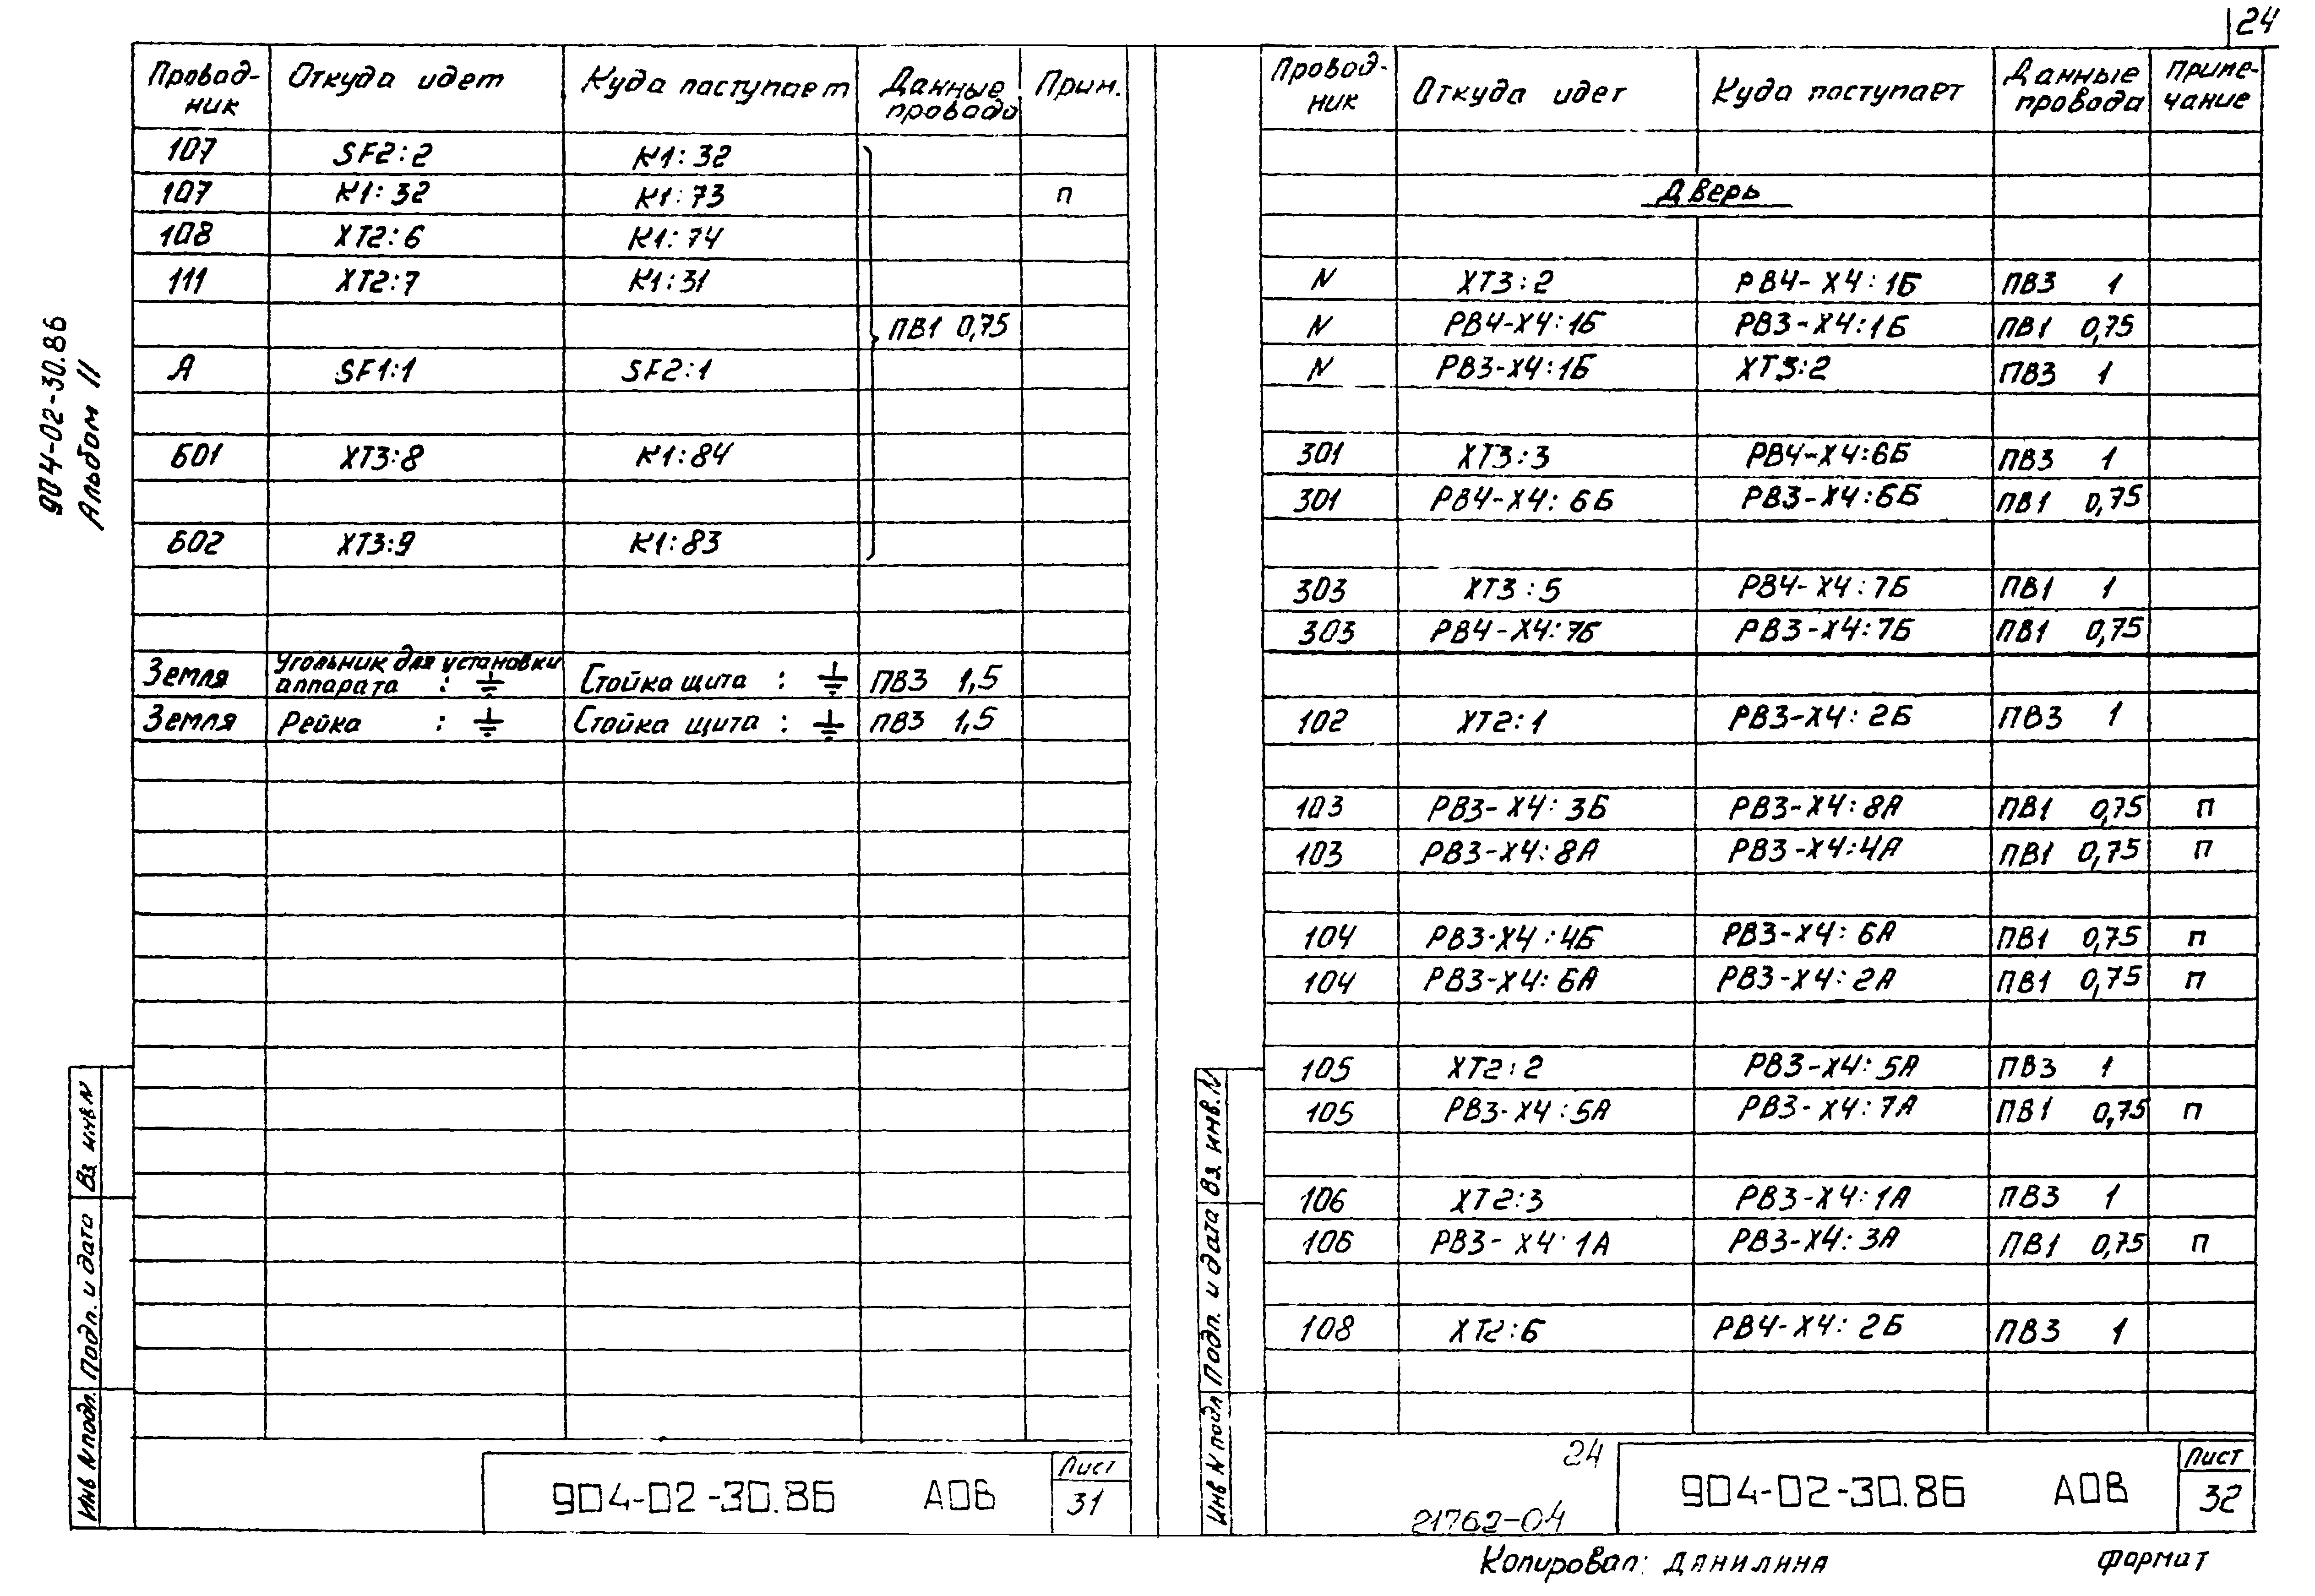 24
904-02-30.86
Альбом II
Провод-ник | Откуда идет | Куда поступает | Данные провода | Прим.
107 | SF2:2 | К1:32
107 | К1:32 | К1:73 | п
108 | ХТ2:6 | К1:74
111 | ХТ2:7 | К1:31
ПВ1 0,75
А | SF1:1 | SF2:1
601 | ХТ3:8 | К1:84
602 | ХТ3:9 | К1:83
Земля | Угольник для установки аппарата : ⏚ | Стойка щита : ⏚ | ПВ3 1,5
Земля | Рейка : ⏚ | Стойка щита : ⏚ | ПВ3 1,5
Инв N подл. | Подп. и дата | Вз инв N
904-02-30.86 АОВ
Лист
31
Провод-ник | Откуда идет | Куда поступает | Данные провода | Приме-чание
Дверь
N | ХТ3:2 | РВ4-Х4:1Б | ПВ3 1
N | РВ4-Х4:1Б | РВ3-Х4:1Б | ПВ1 0,75
N | РВ3-Х4:1Б | ХТ3:2 | ПВ3 1
301 | ХТ3:3 | РВ4-Х4:6Б | ПВ3 1
301 | РВ4-Х4:6Б | РВ3-Х4:6Б | ПВ1 0,75
303 | ХТ3:5 | РВ4-Х4:7Б | ПВ1 1
303 | РВ4-Х4:7Б | РВ3-Х4:7Б | ПВ1 0,75
102 | ХТ2:1 | РВ3-Х4:2Б | ПВ3 1
103 | РВ3-Х4:3Б | РВ3-Х4:8А | ПВ1 0,75 | п
103 | РВ3-Х4:8А | РВ3-Х4:4А | ПВ1 0,75 | п
104 | РВ3-Х4:4Б | РВ3-Х4:6А | ПВ1 0,75 | п
104 | РВ3-Х4:6А | РВ3-Х4:2А | ПВ1 0,75 | п
105 | ХТ2:2 | РВ3-Х4:5А | ПВ3 1
105 | РВ3-Х4:5А | РВ3-Х4:7А | ПВ1 0,75 | п
106 | ХТ2:3 | РВ3-Х4:1А | ПВ3 1
106 | РВ3-Х4:1А | РВ3-Х4:3А | ПВ1 0,75 | п
108 | ХТ2:6 | РВ4-Х4:2Б | ПВ3 1
Инв N подл | Подп. и дата | Вз. инв. N
24
21762-04
904-02-30.86 АОВ
Лист
32
Копировал: Данилина
формат